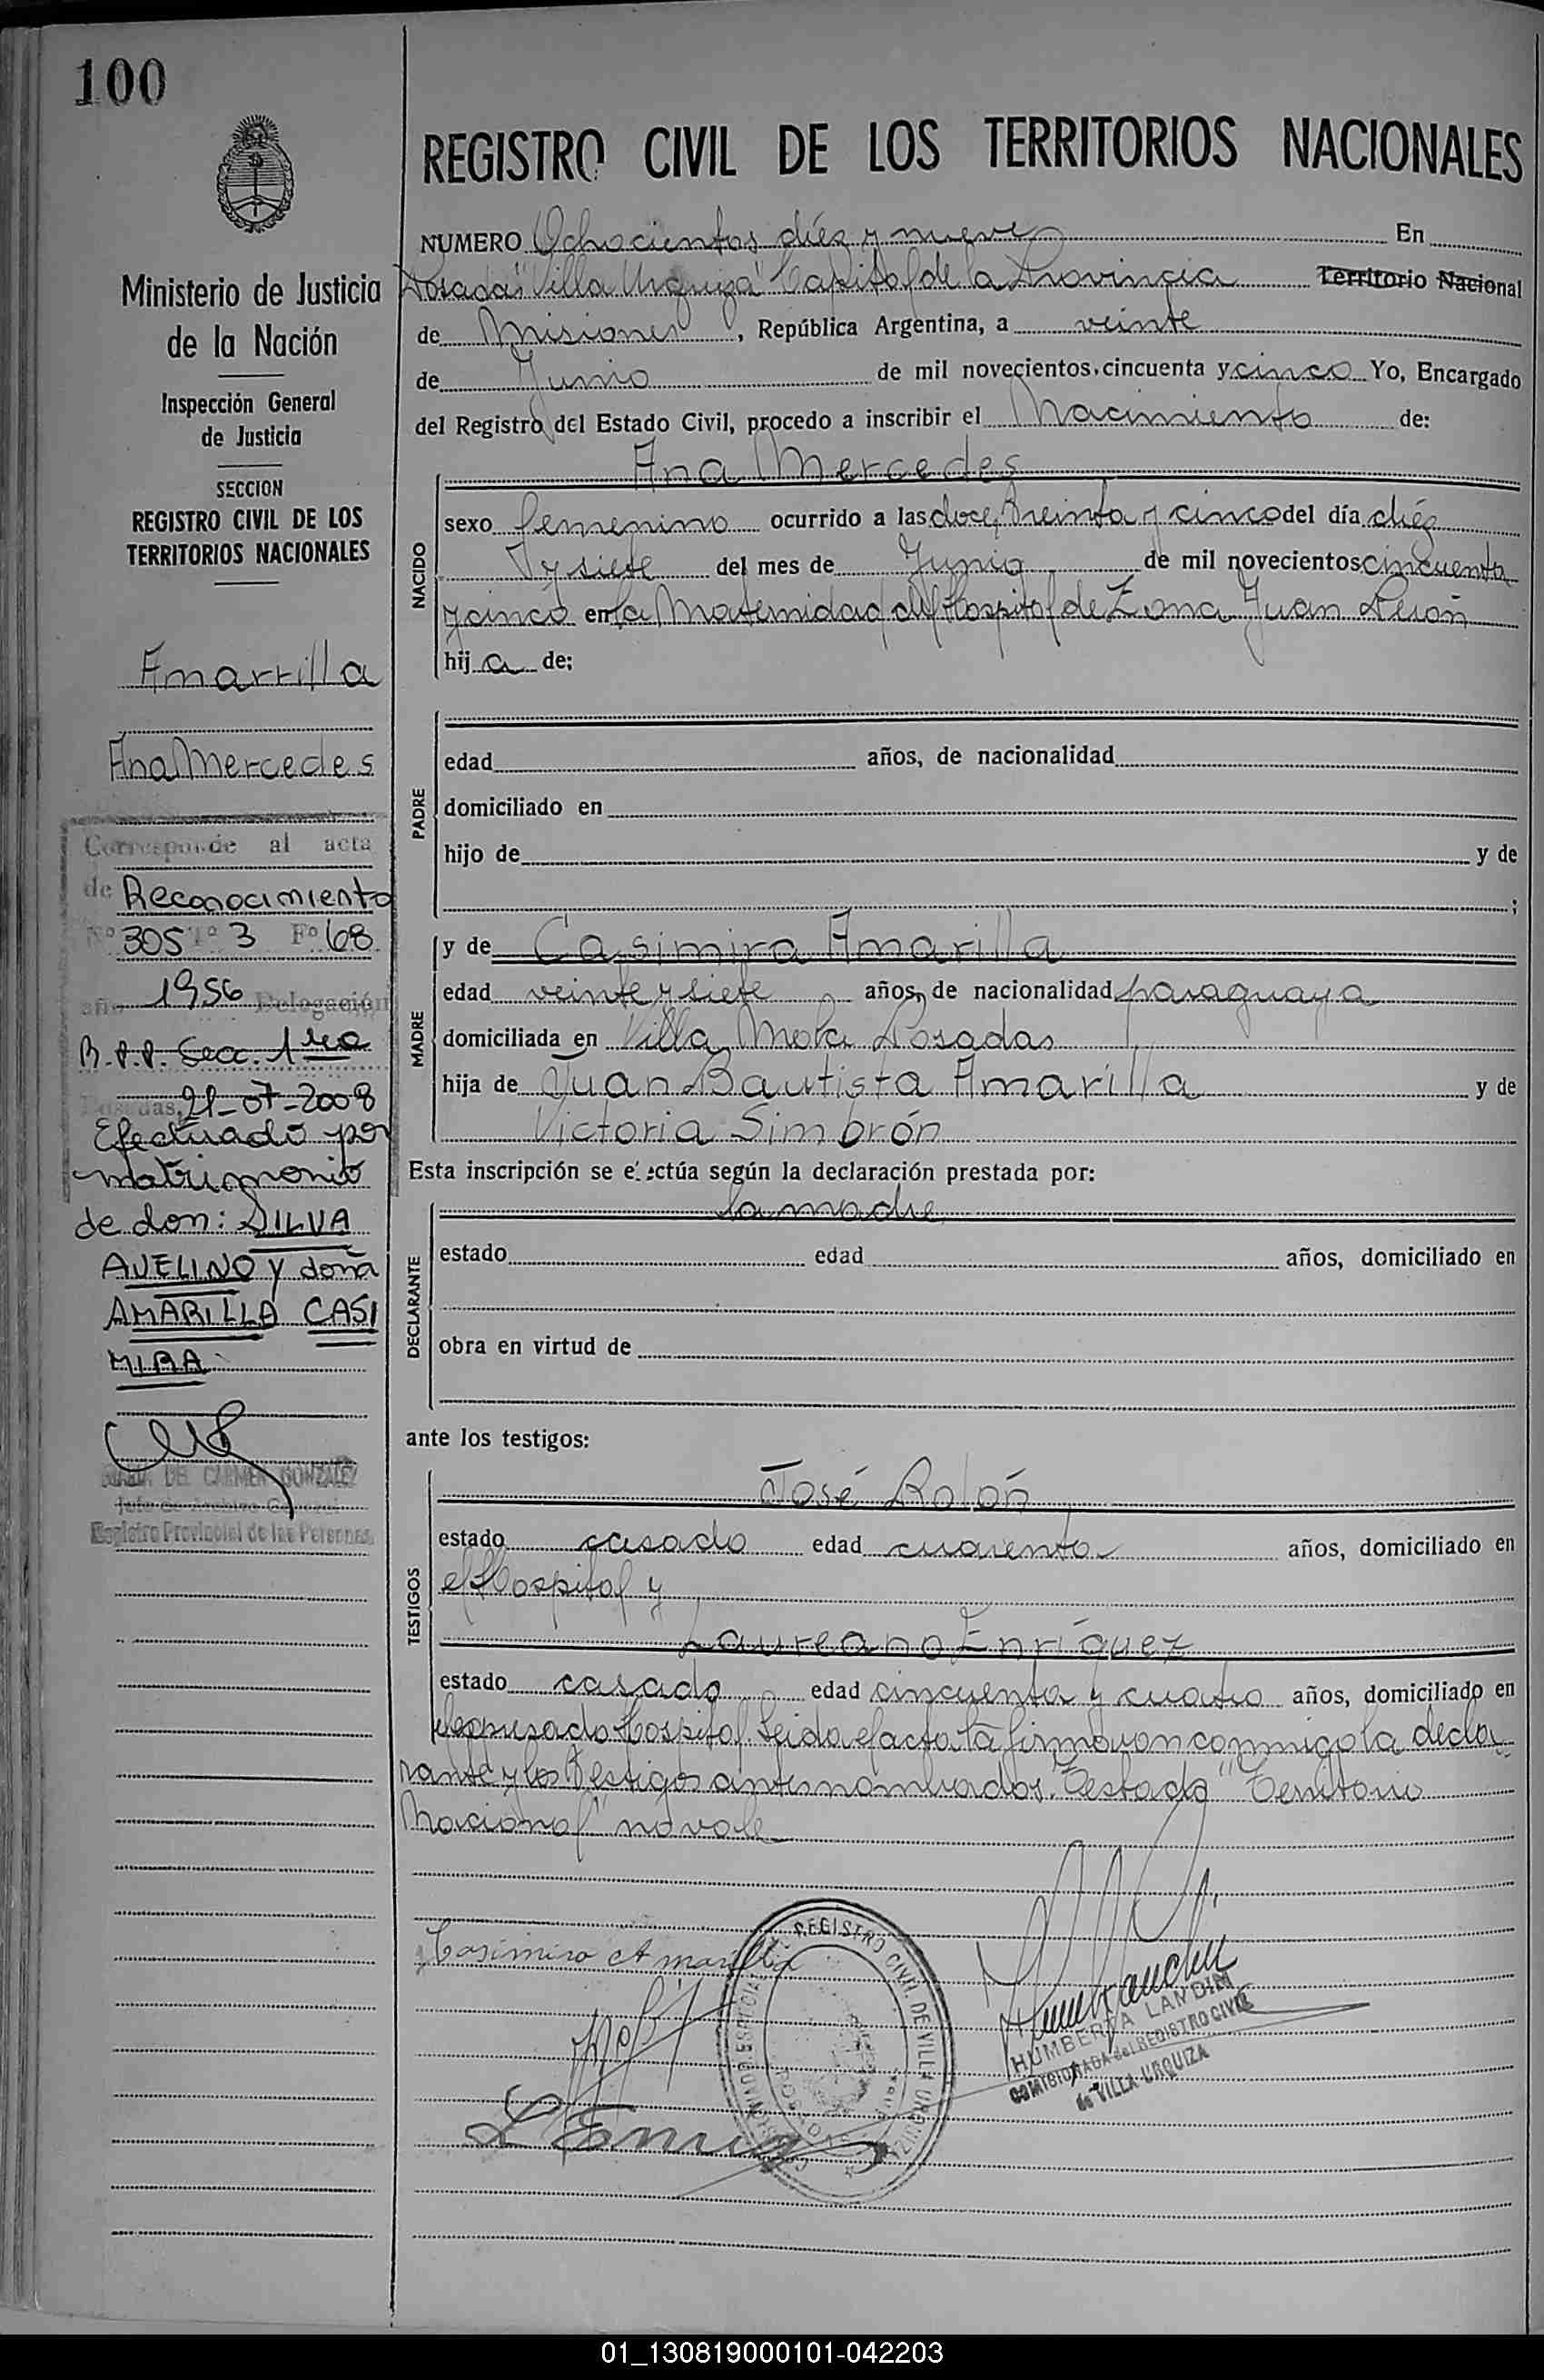 100
Ministerio de Justicia
de la Nación
Inspección General
de Justicia
SECCION
REGISTRO CIVIL DE LOS
TERRITORIOS NACIONALES
Amarrilla
Ana Mercedes
Corresponde al acta
de Reconocimiento
Nº 305 Tº 3 Fº 68
año 1956 Delegación
R.P.P. Secc. 1ra
Posadas, 21-07-2008
Efectuado por
matrimonio
de don: SILVA
AVELINO y doña
AMARILLA CASI
MIRA
MARIA DEL CARMEN GONZALEZ
Jefe de Archivo General
Registro Provincial de las Personas
REGISTRO CIVIL DE LOS TERRITORIOS NACIONALES
NUMERO Ochocientos diéz y nueve En
Posadas "Villa Urquiza" Capital de la Provincia Territorio Nacional
de Misiones, República Argentina, a veinte
de Junio de mil novecientos cincuenta y cinco Yo, Encargado
del Registro del Estado Civil, procedo a inscribir el Nacimiento de:
Ana Mercedes
NACIDO
sexo femenino ocurrido a las doce, treinta y cinco del día diéz
y siete del mes de Junio de mil novecientos cincuenta
y cinco en la Maternidad del Hospital de Zona Juan Perón
hija de:
PADRE
edad años, de nacionalidad
domiciliado en
hijo de y de
;
MADRE
y de Casimira Amarilla
edad veinte y siete años, de nacionalidad paraguaya
domiciliada en Villa Mola Posadas
hija de Juan Bautista Amarilla y de
Victoria Simbrón
Esta inscripción se efectúa según la declaración prestada por:
la madre
DECLARANTE
estado edad años, domiciliado en
obra en virtud de
ante los testigos:
TESTIGOS
José Rolón
estado casado edad cuarenta años, domiciliado en
el Hospital y
Laureano Enríquez
estado casado edad cincuenta y cuatro años, domiciliado en
el expresado Hospital. Leida el acta la firmaron conmigo la decla
rante y los testigos antes nombrados. Testado "Territorio
Nacional" no vale
Casimira Amarilla
L Enriq
REGISTRO CIVIL DE VILLA URQUIZA
HUMBERTA LANDIN
COMISIONADA del REGISTRO CIVIL
de VILLA URQUIZA
01_130819000101-042203